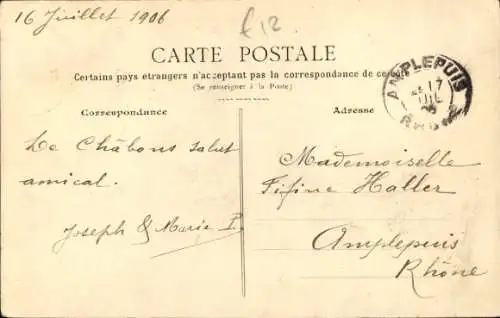 16 Juillet 1906
£12
CARTE POSTALE
Certains pays étrangers n'acceptant pas la correspondance de ce côté
(Se renseigner à la Poste)
AMPLEPUIS
17
JUIL
RHÔNE
Correspondance
Adresse
Le Châbons salut
amical.
Joseph & Marie P.
Mademoiselle
Fifine Haller
Amplepuis
Rhône